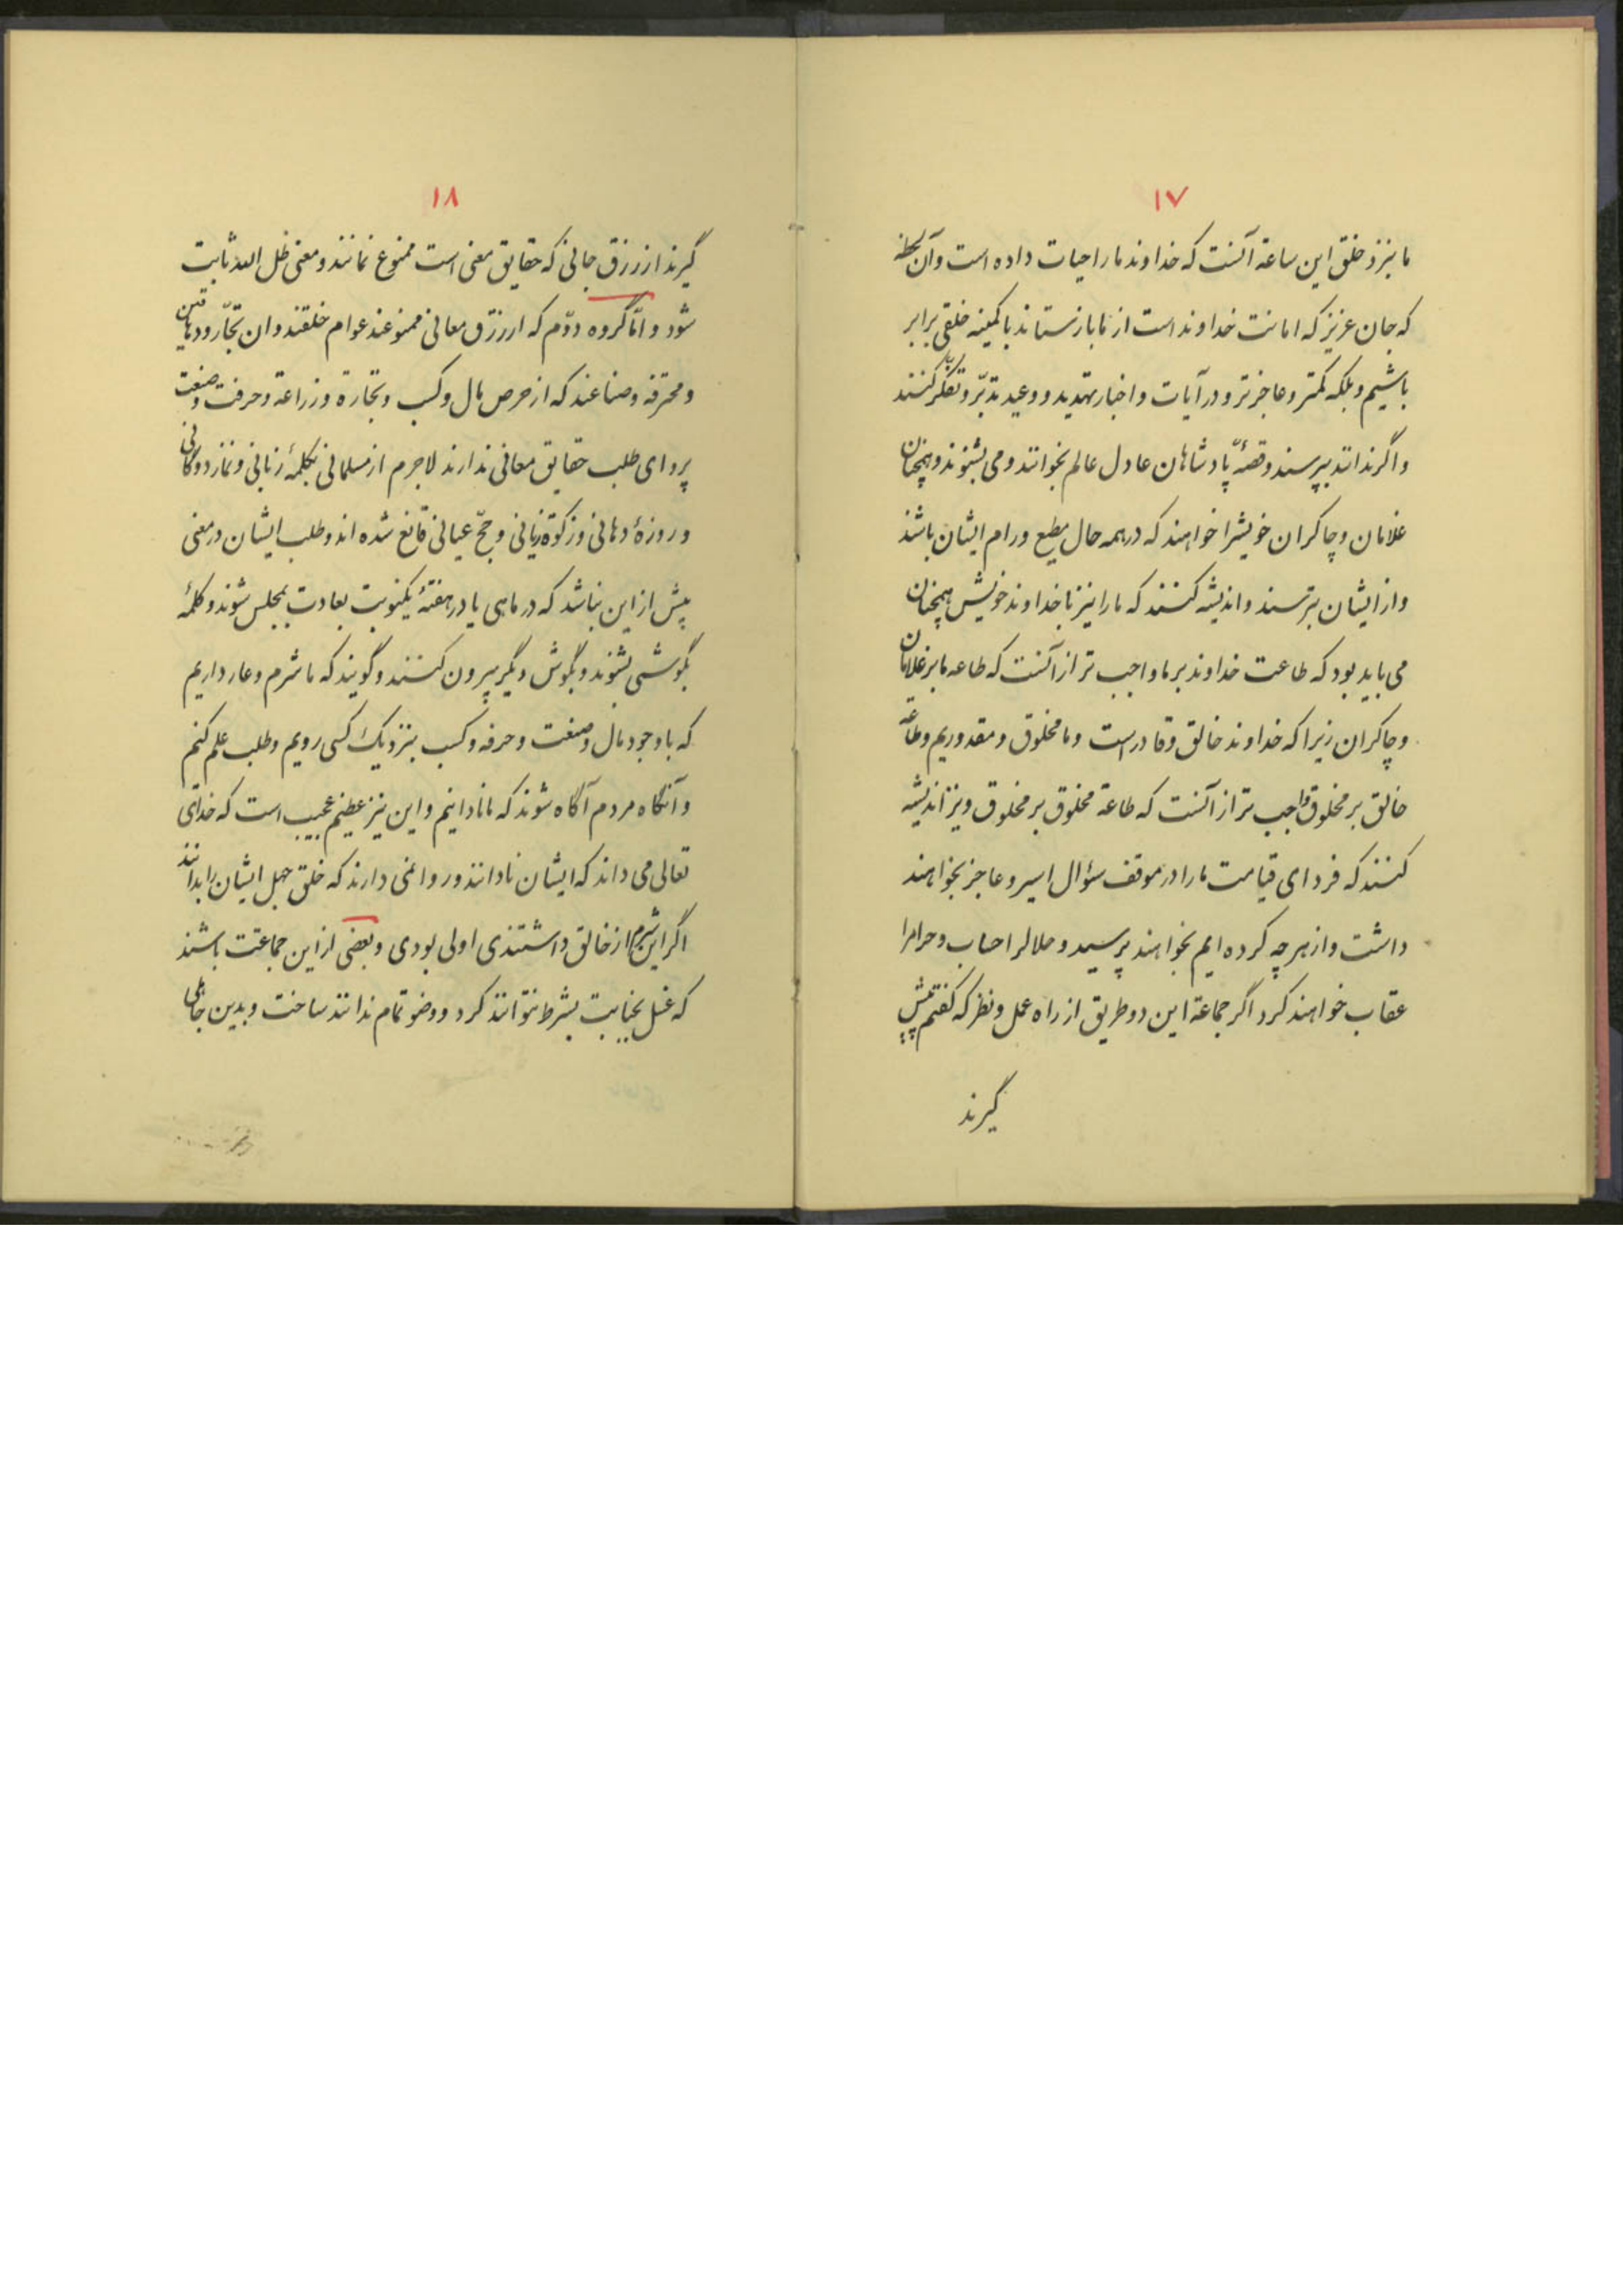 ۱۷
ما بنزد خلق این ساعة آنست که خداوند ما را حیات داده است و آن لحظه
که جان عزیز که امانت خداوند است از ما باز ستاند با کمینه خلقی برابر
باشیم و بلکه کمتر و عاجزتر و در آیات و اخبار تهدید و وعید تدبّر و تفکّر کنند
و اگر ندانند بپرسند و قصّهٔ پادشاهان عادل عالم بخوانند و می بشنوند و همچنان
غلامان و چاکران خویشرا خواهند که در همه حال مطیع و رام ایشان باشند
و از ایشان بترسند و اندیشه کنند که ما را نیز با خداوند خویش همچنان
می باید بود که طاعت خداوند بر ما واجب تر از آنست که طاعه ما بر غلامان
و چاکران زیرا که خداوند خالق و قادر است و ما مخلوق و مقدوریم و طاعة
خالق بر مخلوق واجب تر از آنست که طاعة مخلوق بر مخلوق و نیز اندیشه
کنند که فردای قیامت ما را در موقف سؤال اسیر و عاجز بخواهند
داشت و از هر چه کرده ایم بخواهند پرسید و حلالرا حساب و حرامرا
عقاب خواهند کرد اگر جماعة این دو طریق از راه عمل و نظر که گفتیم پیش
گیرند
۱۸
گیرند از رزق جانی که حقایق معنی است ممنوع نمانند و معنی ظل الله ثابت
شود و امّا گروه دوّم که از رزق معانی ممنوعند عوام خلقند و ان تجّار و دهاقین
و محترفه و صناعند که از حرص مال و کسب و تجارة و زراعة و حرفت و صنعت
پروای طلب حقایق معانی ندارند لاجرم از مسلمانی بکلمهٔ زبانی و نماز دوگانی
و روزهٔ دهانی و زکوة زبانی و حجّ عیانی قانع شده اند و طلب ایشان در معنی
بیش از این نباشد که در ماهی یا در هفتهٔ یکنوبت بعادت بمجلس شوند و کلمهٔ
بگوشی بشنوند و بگوش دیگر بیرون کنند و گویند که ما شرم و عار داریم
که با وجود مال و صنعت و حرفه و کسب بنزدیک کسی رویم و طلب علم کنیم
و آنگاه مردم آگاه شوند که ما نادانیم و این نیز عظیم عجیب است که خدای
تعالی می داند که ایشان نادانند و روا نمی دارند که خلق جهل ایشان را بدانند
اگر این شرم از خالق داشتندی اولی بودی و بعضی از این جماعت باشند
که غسل جنابت بشرط نتوانند کرد و وضو تمام ندانند ساخت و بدین جاهلی